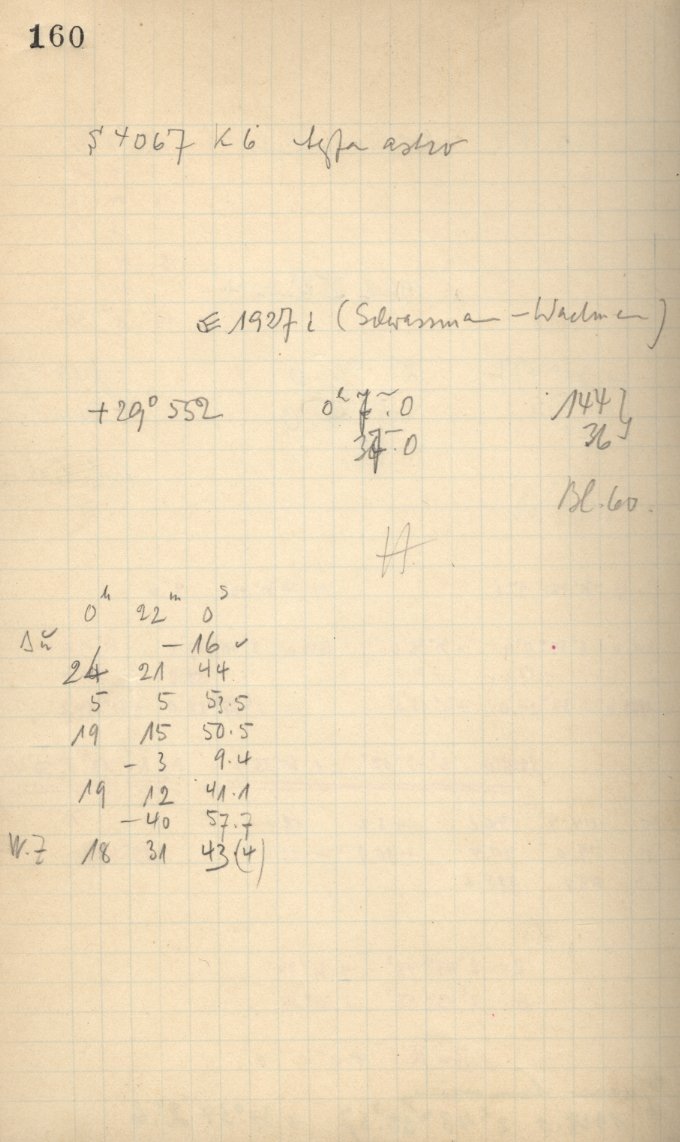 160
S 4067 K 6 Agfa astro
1927 i (Schwassmann - Wachmann)
+29° 552 0ʰ 7ᵐ.0 144
37ᵐ.0 36
Bl. 60.
0ʰ 22ᵐ 0ˢ
Δu - 16 ✓
24 21 44
5 5 53.5
19 15 50.5
- 3 9.4
19 12 41.1
- 40 57.7
W.Z 18 31 43(4)